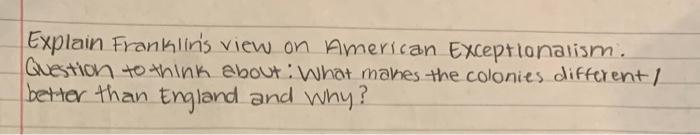 Explain Franklin's view on American Exceptionalism.
Question to think about: What makes the colonies different/
better than England and why?